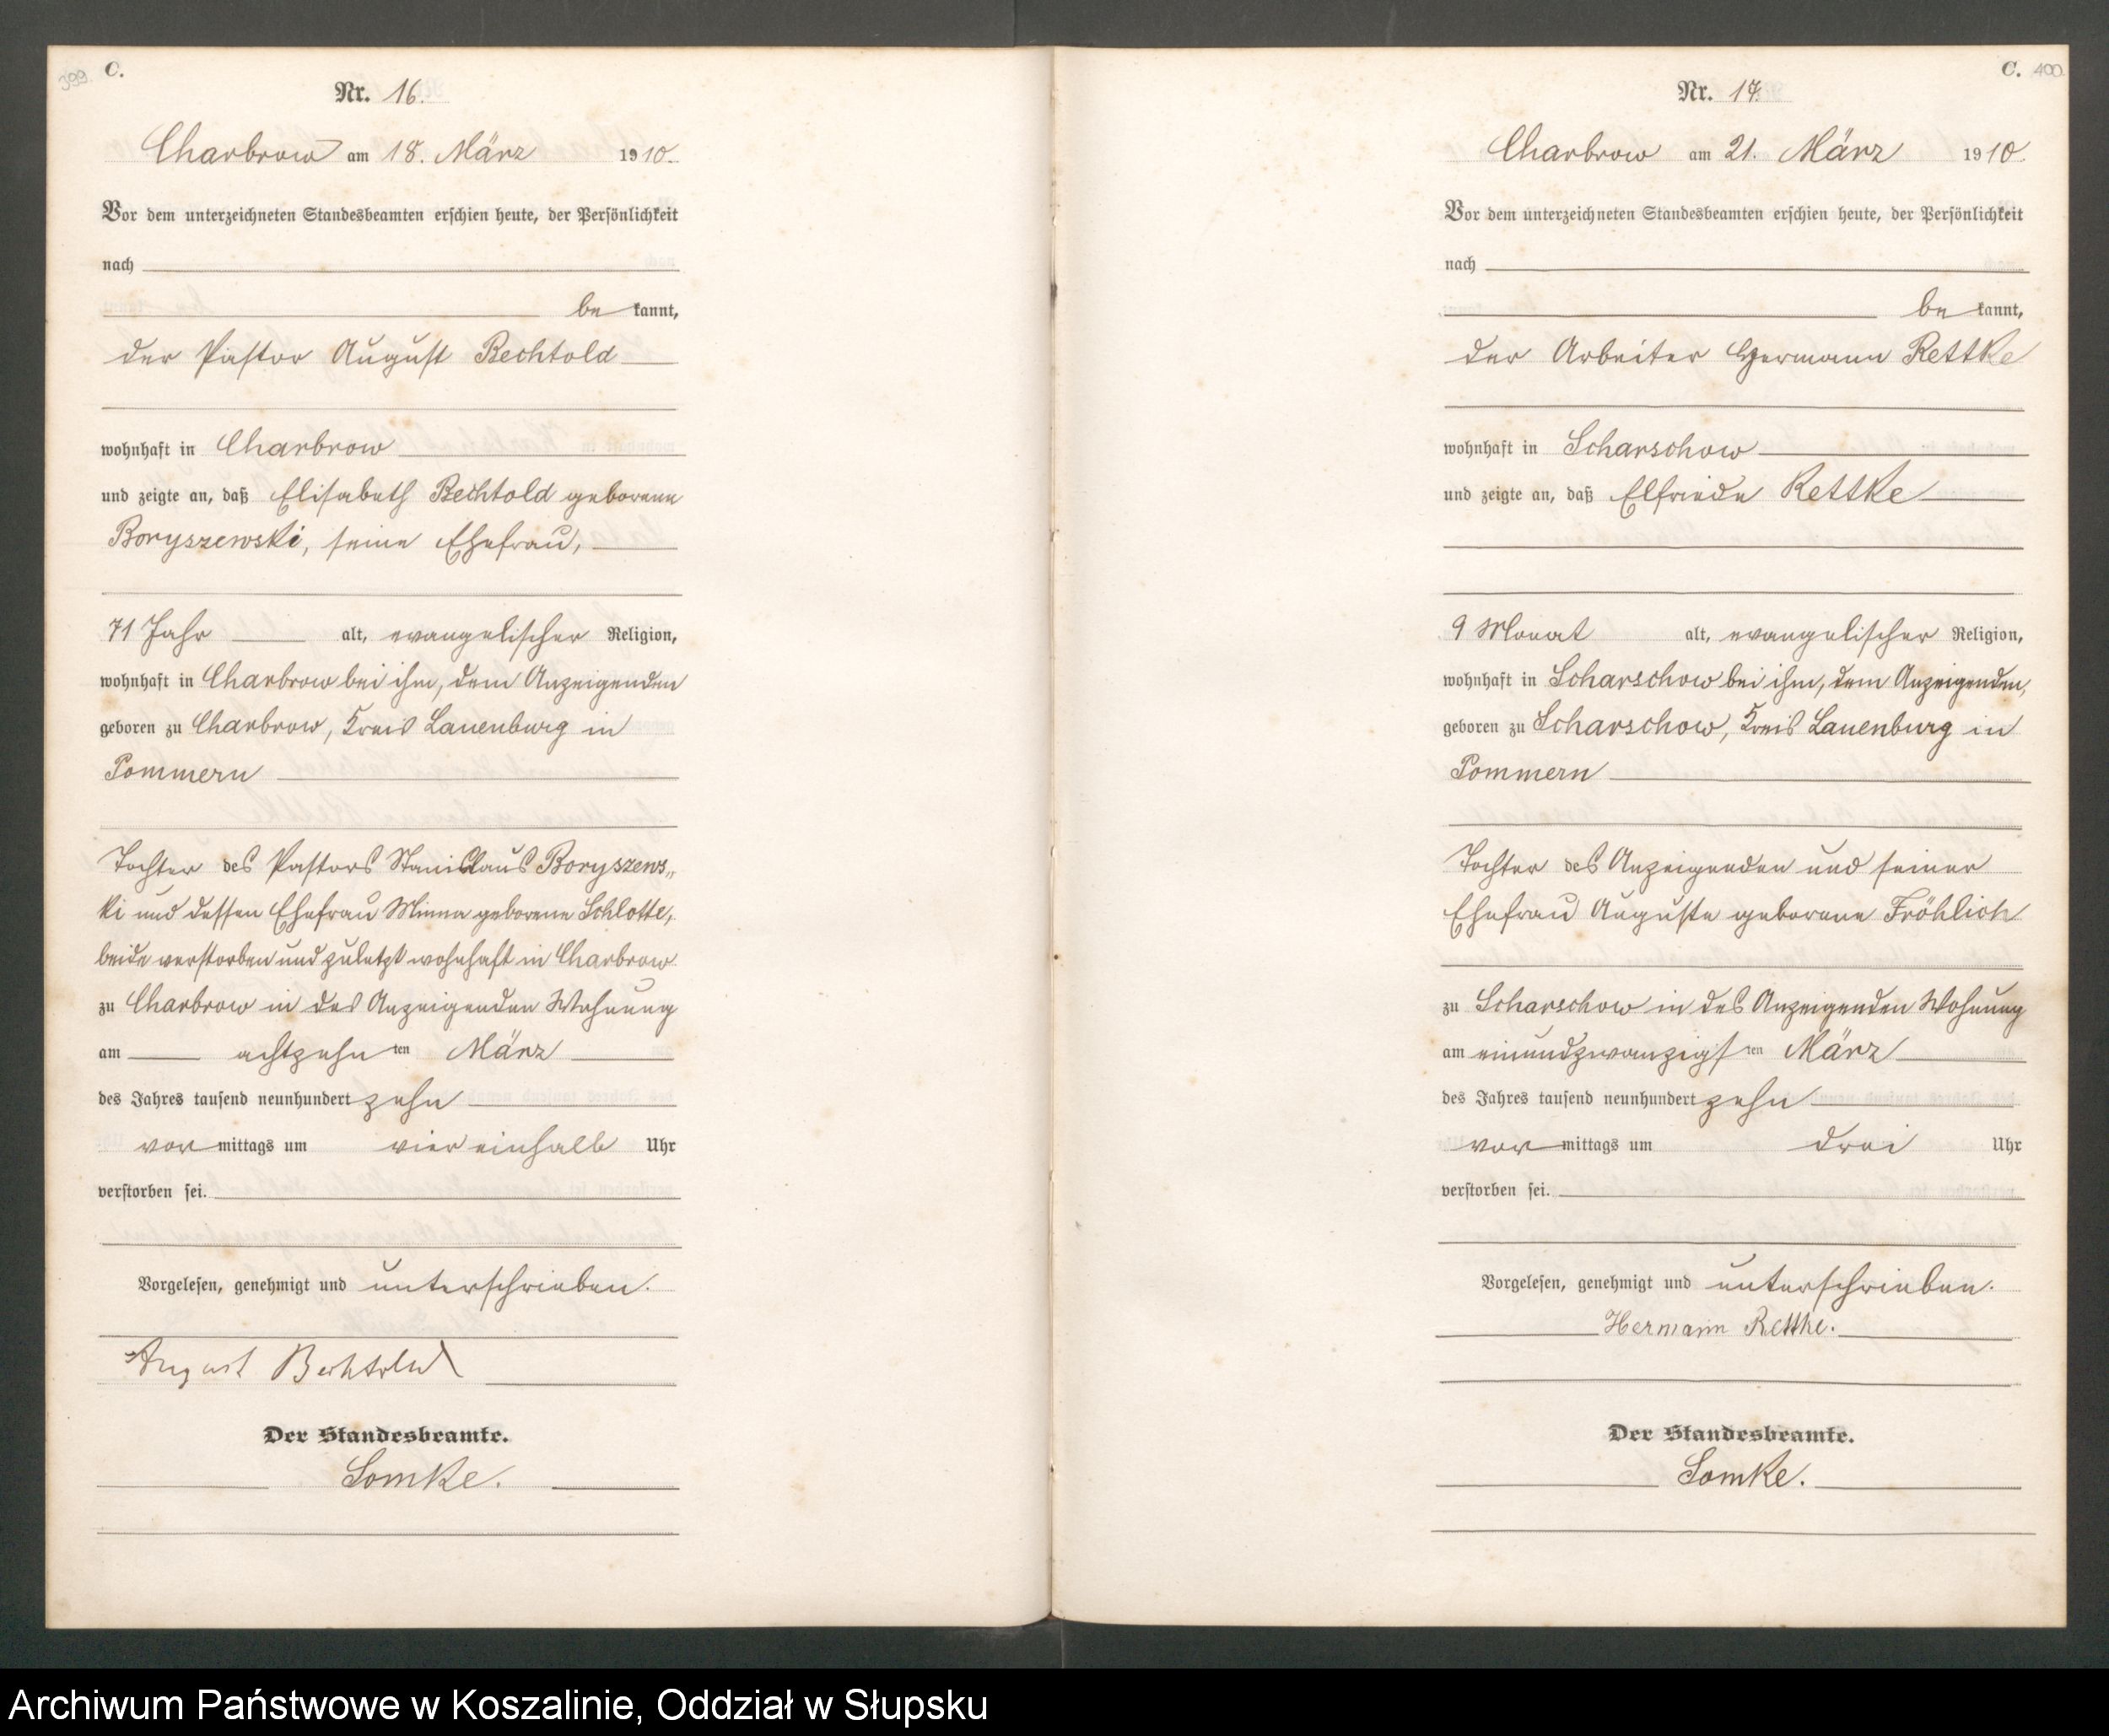 399.
C.
Nr. 16.
Charbrow am 18. März 1910.
Vor dem unterzeichneten Standesbeamten erschien heute, der Persönlichkeit
nach
be kannt,
der Pastor August Bechtold
wohnhaft in Charbrow
und zeigte an, daß Elisabeth Bechtold geborene
Boryszewski, seine Ehefrau,
71 Jahr alt, evangelischer Religion,
wohnhaft in Charbrow bei ihm, dem Anzeigenden
geboren zu Charbrow, Kreis Lauenburg in
Pommern
Tochter des Pastors Stanislaus Boryszews„
ki und dessen Ehefrau Minna geborene Schlotte,
beide verstorben und zuletzt wohnhaft in Charbrow
zu Charbrow in des Anzeigenden Wohnung
am achtzehn ten März
des Jahres tausend neunhundert zehn
vor mittags um vier einhalb Uhr
verstorben sei.
Vorgelesen, genehmigt und unterschrieben.
August Bechtold
Der Standesbeamte.
Somke.
C.
400
Nr. 17.
Charbrow am 21. März 1910.
Vor dem unterzeichneten Standesbeamten erschien heute, der Persönlichkeit
nach
be kannt,
der Arbeiter Hermann Rettke
wohnhaft in Scharschow
und zeigte an, daß Elfriede Rettke
9 Monat alt, evangelischer Religion,
wohnhaft in Scharschow bei ihm, dem Anzeigenden,
geboren zu Scharschow, Kreis Lauenburg in
Pommern
Tochter des Anzeigenden und seiner
Ehefrau Auguste geborene Fröhlich
zu Scharschow in des Anzeigenden Wohnung
am einundzwanzigs ten März
des Jahres tausend neunhundert zehn
vor mittags um drei Uhr
verstorben sei.
Vorgelesen, genehmigt und unterschrieben.
Hermann Rettke.
Der Standesbeamte.
Somke.
Archiwum Państwowe w Koszalinie, Oddział w Słupsku